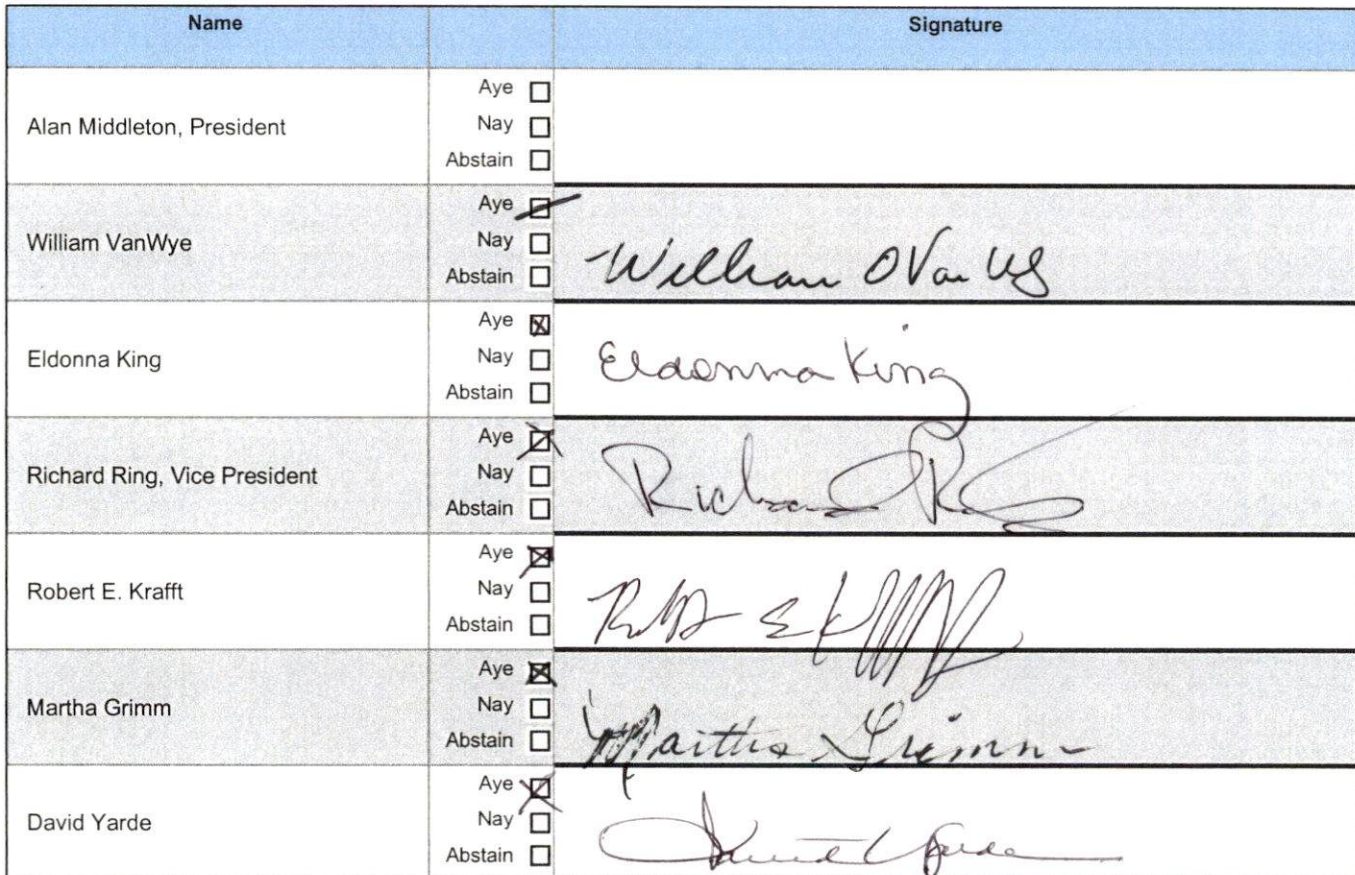 Name Signature
Aye ☐
Alan Middleton, President
Nay ☐
Abstain ☐
Aye ☒
William VanWye
Nay ☐
Abstain ☐
William O Van Wy
Aye ☒
Eldonna King
Nay ☐
Abstain ☐
Eldonna King
Aye ☒
Richard Ring, Vice President
Nay ☐
Abstain ☐
Richard
Aye ☒
Robert E. Krafft
Nay ☐
Abstain ☐
Aye ☒
Martha Grimm
Nay ☐
Abstain ☐
Martha Grimm
Aye ☒
David Yarde
Nay ☐
Abstain ☐
David Yarde